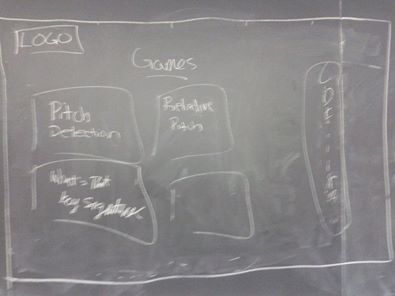 LOGO
Games
Pitch
Detection
Relative
Pitch
What's That
Key Signature